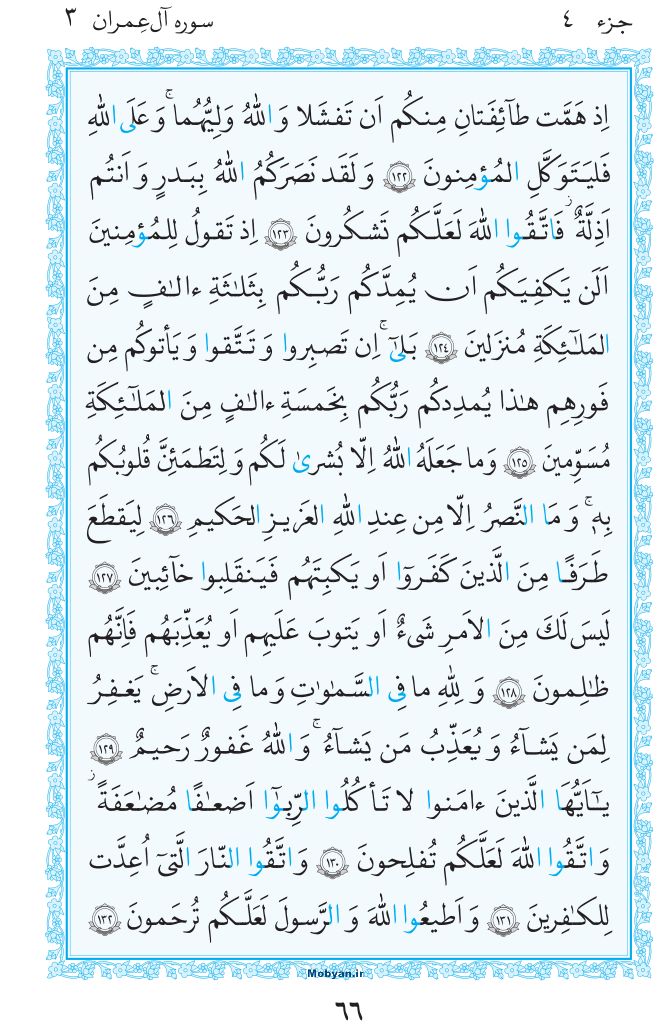 جزء ٤
سوره آل‌عِمران ۳
اِذ هَمَّت طآئِفَتانِ مِنكُم اَن تَفشَلا وَ اللهُ وَلِيُّهُما ۚ وَ عَلَى اللهِ
فَليَتَوَكَّلِ المُؤمِنونَ ﴿١٢٢﴾ وَ لَقَد نَصَرَكُمُ اللهُ بِبَدرٍ وَ اَنتُم
اَذِلَّةٌ ۖ فَاتَّقُوا اللهَ لَعَلَّكُم تَشكُرونَ ﴿١٢٣﴾ اِذ تَقولُ لِلمُؤمِنينَ
اَلَن يَكفِيَكُم اَن يُمِدَّكُم رَبُّكُم بِثَلٰثَةِ ءالـٰفٍ مِنَ
المَلٰٓئِكَةِ مُنزَلينَ ﴿١٢٤﴾ بَلىٰٓ ۚ اِن تَصبِروا وَ تَتَّقوا وَ يَأتوكُم مِن
فَورِهِم هـٰذا يُمدِدكُم رَبُّكُم بِخَمسَةِ ءالـٰفٍ مِنَ المَلٰٓئِكَةِ
مُسَوِّمينَ ﴿١٢٥﴾ وَما جَعَلَهُ اللهُ اِلّا بُشرىٰ لَكُم وَ لِتَطمَئِنَّ قُلوبُكُم
بِهٖ ۗ وَ مَا النَّصرُ اِلّا مِن عِندِ اللهِ العَزيزِ الحَكيمِ ﴿١٢٦﴾ لِيَقطَعَ
طَرَفًا مِنَ الَّذينَ كَفَروٓا اَو يَكبِتَهُم فَيَنقَلِبوا خآئِبينَ ﴿١٢٧﴾
لَيسَ لَكَ مِنَ الاَمرِ شَىءٌ اَو يَتوبَ عَلَيهِم اَو يُعَذِّبَهُم فَاِنَّهُم
ظٰلِمونَ ﴿١٢٨﴾ وَ لِلّٰهِ ما فِى السَّمـٰوٰتِ وَ ما فِى الاَرضِ ۚ يَغفِرُ
لِمَن يَشآءُ وَ يُعَذِّبُ مَن يَشآءُ ۚ وَ اللهُ غَفورٌ رَحيمٌ ﴿١٢٩﴾
يـٰٓاَيُّهَا الَّذينَ ءامَنوا لا تَأكُلُوا الرِّبوٰٓا اَضعـٰفًا مُضـٰعَفَةً ۖ
وَ اتَّقُوا اللهَ لَعَلَّكُم تُفلِحونَ ﴿١٣٠﴾ وَ اتَّقُوا النّارَ الَّتىٓ اُعِدَّت
لِلكـٰفِرينَ ﴿١٣١﴾ وَ اَطيعُوا اللهَ وَ الرَّسولَ لَعَلَّكُم تُرحَمونَ ﴿١٣٢﴾
Mobyan.ir
٦٦